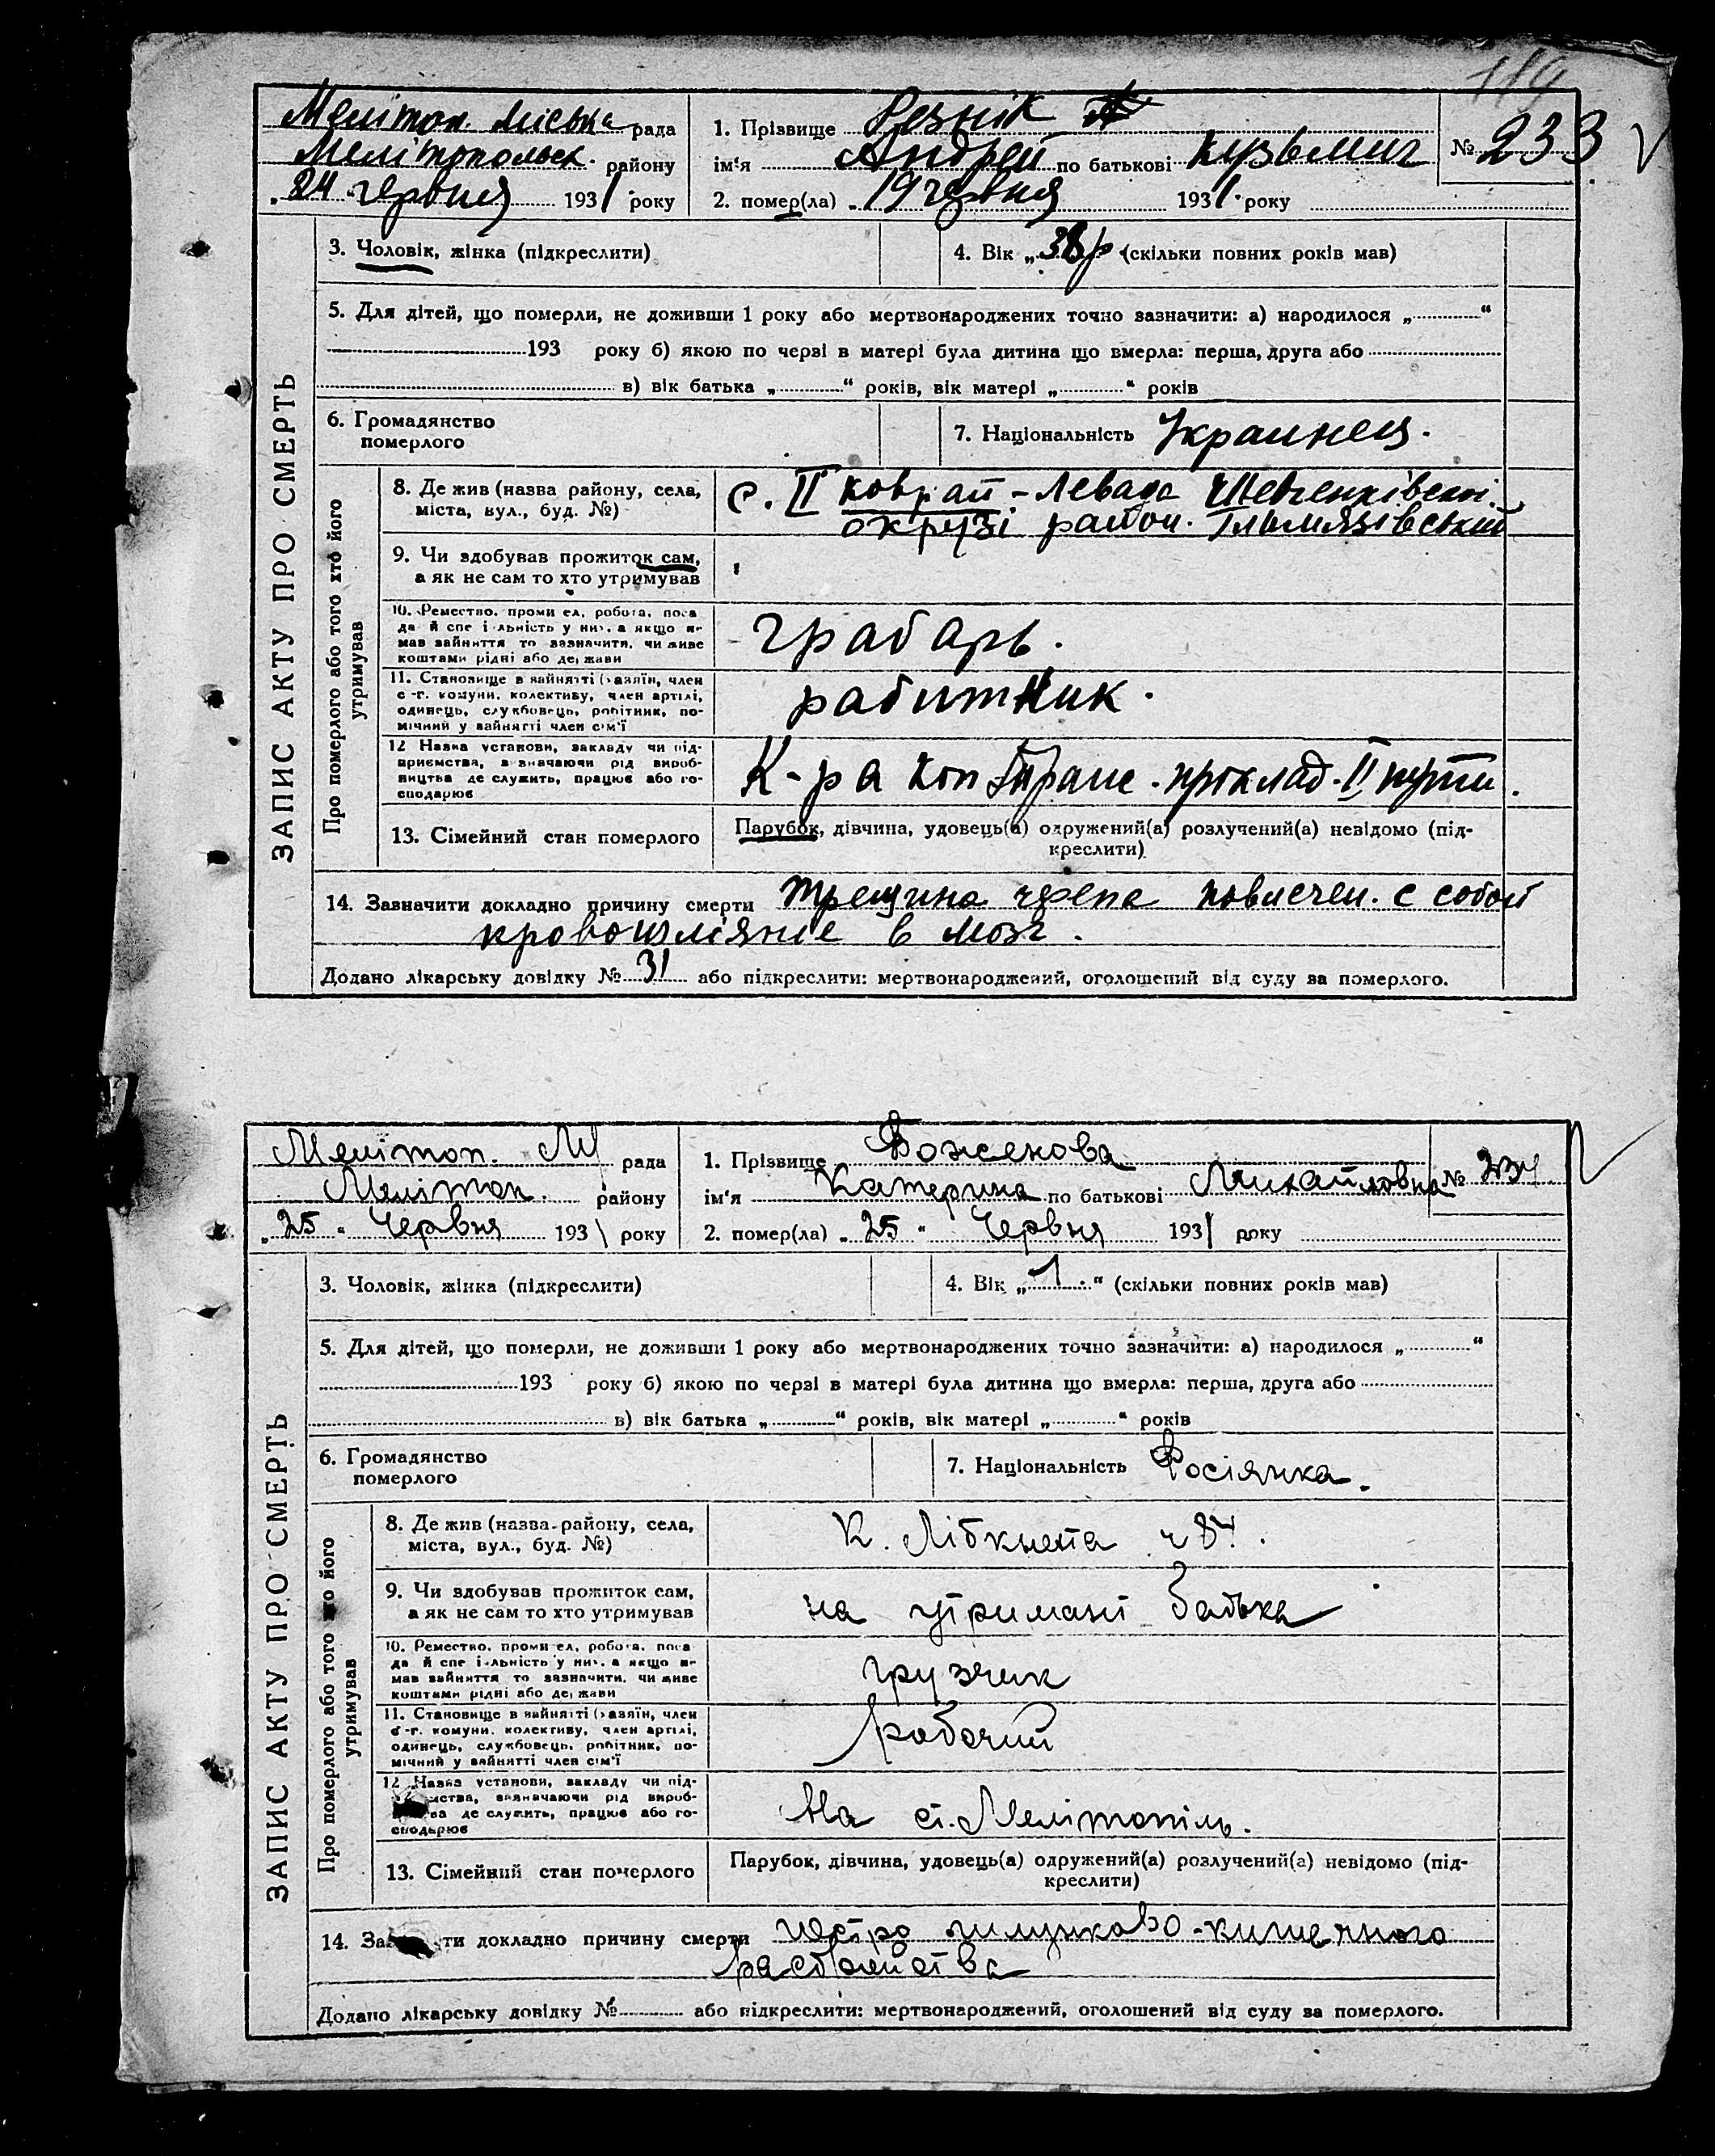 119
Мелітоп. міська рада
Мелітопольськ. району
„24 червня 1931 року
1. Прізвище Резнік
ім‘я Андрей по батькові Кузьмич
2. помер(ла) „19 червня 1931 року
№ 233
ЗАПИС АКТУ ПРО СМЕРТЬ
3. Чоловік, жінка (підкреслити)
4. Вік „38 р (скільки повних років мав)
5. Для дітей, що померли, не доживши 1 року або мертвонароджених точно зазначити: а) народилося „ “
193 року б) якою по черзі в матері була дитина що вмерла: перша, друга або
в) вік батька „ “ років, вік матері „ “ років
6. Громадянство
померлого
7. Національність Украинец.
Про померлого або того хто його
утримував
8. Де жив (назва району, села,
міста, вул., буд. №)
с. II Коврай - Левада Шевченківській
окрузі район. Гльмязівський
9. Чи здобував прожиток сам,
а як не сам то хто утримував
10. Ремество, промисел, робота, поса
да й спеціяльність у них, а якщо н-
мав зайняття то зазначити, чи живе
коштами рідні або держави
грабарь.
11. Становище в зайнятті (хазяїн, член
с-г. комуни, колективу, член артілі,
одинець, службовець, робітник, по-
мічний у зайнятті член сім‘ї
работник.
12 Назва установи, закладу чи під-
приємства, зазначаючи рід вироб-
ництва де служить, працює або го-
сподарює
К-ра . проклад. II
13. Сімейний стан померлого
Парубок, дівчина, удовець(а) одружений(а) розлучений(а) невідомо (під-
креслити)
14. Зазначити докладно причину смерти трещина черепа повлечен. с собой
кровоизліяніе в мозг.
Додано лікарську довідку № 31 або підкреслити: мертвонароджений, оголошений від суду за померлого.
Мелітоп. М рада
Мелітоп. району
„25“ Червня 1931 року
1. Прізвище Боженова
ім‘я Катерина по батькові Михайловна
2. помер(ла) „25“ Червня 1931 року
№ 234
ЗАПИС АКТУ ПРО СМЕРТЬ
3. Чоловік, жінка (підкреслити)
4. Вік „1“ (скільки повних років мав)
5. Для дітей, що померли, не доживши 1 року або мертвонароджених точно зазначити: а) народилося „ “
193 року б) якою по черзі в матері була дитина що вмерла: перша, друга або
в) вік батька „ “ років, вік матері „ “ років
6. Громадянство
померлого
7. Національність Росіянка.
Про померлого або того хто його
утримував
8. Де жив (назва району, села,
міста, вул., буд. №)
К. Лібкнехта ч 84.
9. Чи здобував прожиток сам,
а як не сам то хто утримував
на утримані батька
10. Ремество, промисел, робота, поса
да й спеціяльність у них, а якщо н-
мав зайняття то зазначити, чи живе
коштами рідні або держави
грузчик
11. Становище в зайнятті (хазяїн, член
с-г. комуни, колективу, член артілі,
одинець, службовець, робітник, по-
мічний у зайнятті член сім‘ї
рабочий
12 Назва установи, закладу чи під-
приємства, зазначаючи рід вироб-
ництва де служить, працює або го-
сподарює
На ст. Мелітопіль.
13. Сімейний стан померлого
Парубок, дівчина, удовець(а) одружений(а) розлучений(а) невідомо (під-
креслити)
14. Зазначити докладно причину смерти шлунково-кишечного
расстройства
Додано лікарську довідку № або підкреслити: мертвонароджений, оголошений від суду за померлого.